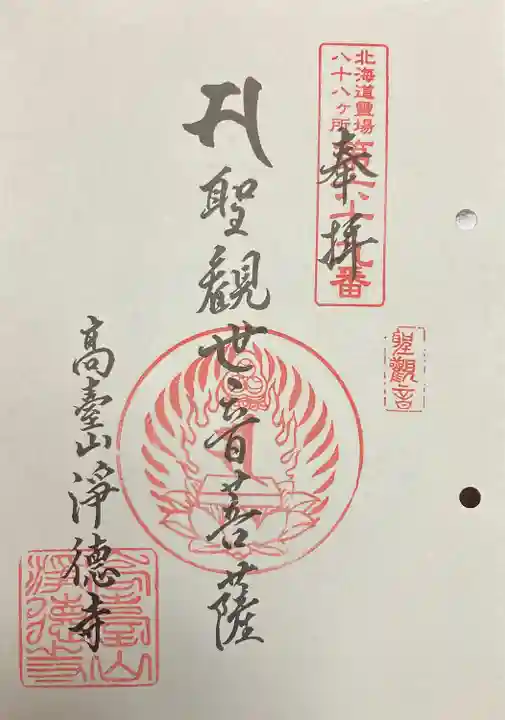 北海道霊場
八十八ヶ所
第六十九番
奉拝
聖観音
聖観世音菩薩
高臺山淨徳寺
高臺山
淨徳寺